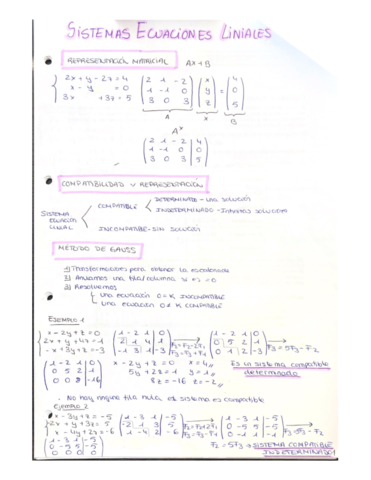 SISTEMAS ECUACIONES LINIALES
REPRESENTACIÓN MATRICIAL AX=B
2x + y - 2z = 4
x - y = 0
3x + 3z = 5
( 2 1 -2 ) ( x ) ( 4 )
( 1 -1 0 ) ( y ) = ( 0 )
( 3 0 3 ) ( z ) ( 5 )
A X B
A*
( 2 1 -2 | 4 )
( 1 -1 0 | 0 )
( 3 0 3 | 5 )
COMPATIBILIDAD Y REPRESENTACIÓN
SISTEMA ECUACIÓN LINIAL
COMPATIBLE
DETERMINADO - una solución
INDETERMINADO - Infinitas soluciones
INCOMPATIBLE - SIN solución
MÉTODO DE GAUSS
1) Transformaciones para obtener la escalonada
2) Anulamos una fila/columna si es = 0
3) Resolvemos
Una ecuación 0 = K INCOMPATIBLE
Una ecuación 0 = 0 COMPATIBLE
EJEMPLO 1
x - 2y + z = 0
2x + y + 4z = 1
-x + 3y + z = -3
( 1 -2 1 | 0 )
( 2 1 4 | 1 )
( -1 3 1 | -3 )
( 1 -2 1 | 0 )
( 0 5 2 | 1 )
( 0 1 2 | -3 )
F3 = 5F3 - F2
( 1 -2 1 | 0 )
( 0 5 2 | 1 )
( 0 0 8 | -16 )
x - 2y + z = 0 x = 4
5y + 2z = 1 y = 1
8z = -16 z = -2
Es un sistema compatible
determinado
- No hay ninguna fila nula, es sistema es compatible
Ejemplo 2
x - 3y + z = -5
2x + y + 3z = 5
x - 4y + 2z = -6
( 1 -3 1 | -5 )
( 1 -4 2 | -6 )
( 1 -3 1 | -5 )
( 0 -1 1 | -1 )
( 1 -3 1 | -5 )
( 0 0 0 | 0 )
SISTEMA COMPATIBLE
INDETERMINADO